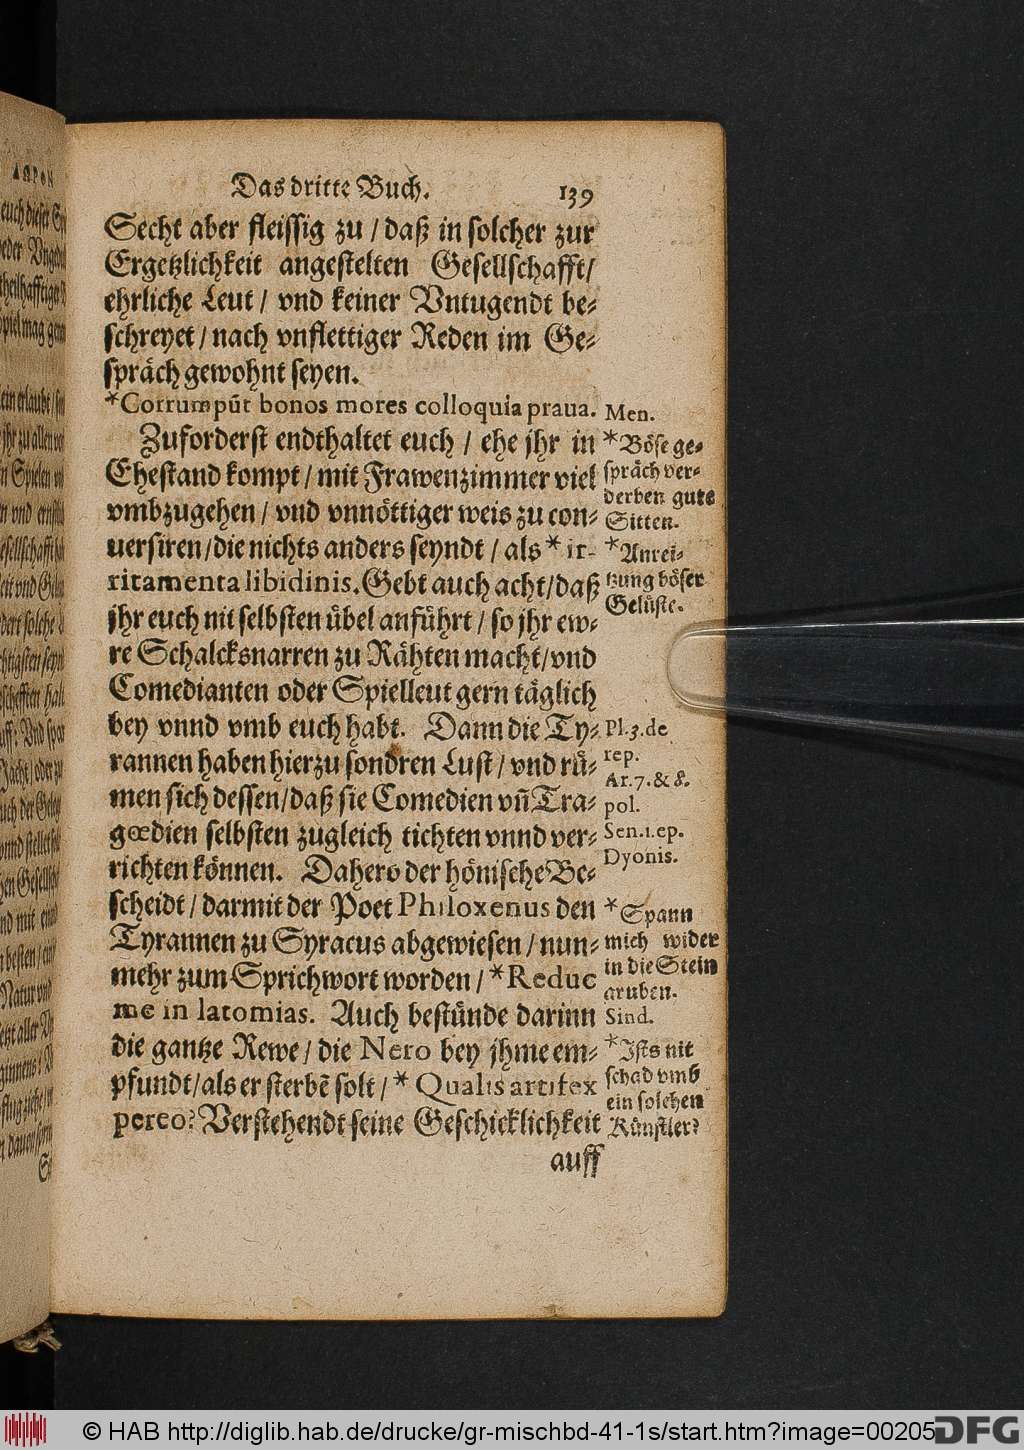 Das dritte Buch. 139
Secht aber fleissig zu / daß in solcher zur
Ergetzlichkeit angestelten Gesellschafft/
ehrliche Leut / vnd keiner Vntugendt be-
schreyet / nach vnflettiger Reden im Ge-
spräch gewohnt seyen.
*Corrumpūt bonos mores colloquia praua.
Zuforderst endthaltet euch / ehe jhr in
Ehestand kompt / mit Frawenzimmer viel
vmbzugehen / vnd vnnöttiger weis zu con-
uersiren/die nichts anders seyndt / als * ir-
ritamenta libidinis. Gebt auch acht/daß
jhr euch nit selbsten übel anführt / so jhr ew-
re Schalcksnarren zu Rähten macht/vnd
Comedianten oder Spielleut gern täglich
bey vnnd vmb euch habt. Dann die Ty-
rannen haben hierzu sondren Lust / vnd rü-
men sich dessen/daß sie Comedien vn̄ Tra-
gœdien selbsten zugleich tichten vnnd ver-
richten können. Dahero der hönische Be-
scheidt / darmit der Poet Philoxenus den
Tyrannen zu Syracus abgewiesen / nun-
mehr zum Sprichwort worden / *Reduc
me in latomias. Auch bestünde darinn
die gantze Rewe / die Nero bey jhme em-
pfundt/als er sterbē solt / * Qualis artifex
pereo? Verstehendt seine Geschicklichkeit
auff
Men.
*Böse ge-
spräch ver-
derben gute
Sitten.
*Anrei-
tzung böser
Gelüste.
Pl.3.de
rep.
Ar.7.& 8.
pol.
Sen.1.ep.
Dyonis.
*Spann
mich wider
in die Stein
gruben.
Sind.
*Ists nit
schad vmb
ein solchen
Künstler?
© HAB http://diglib.hab.de/drucke/gr-mischbd-41-1s/start.htm?image=00205
DFG